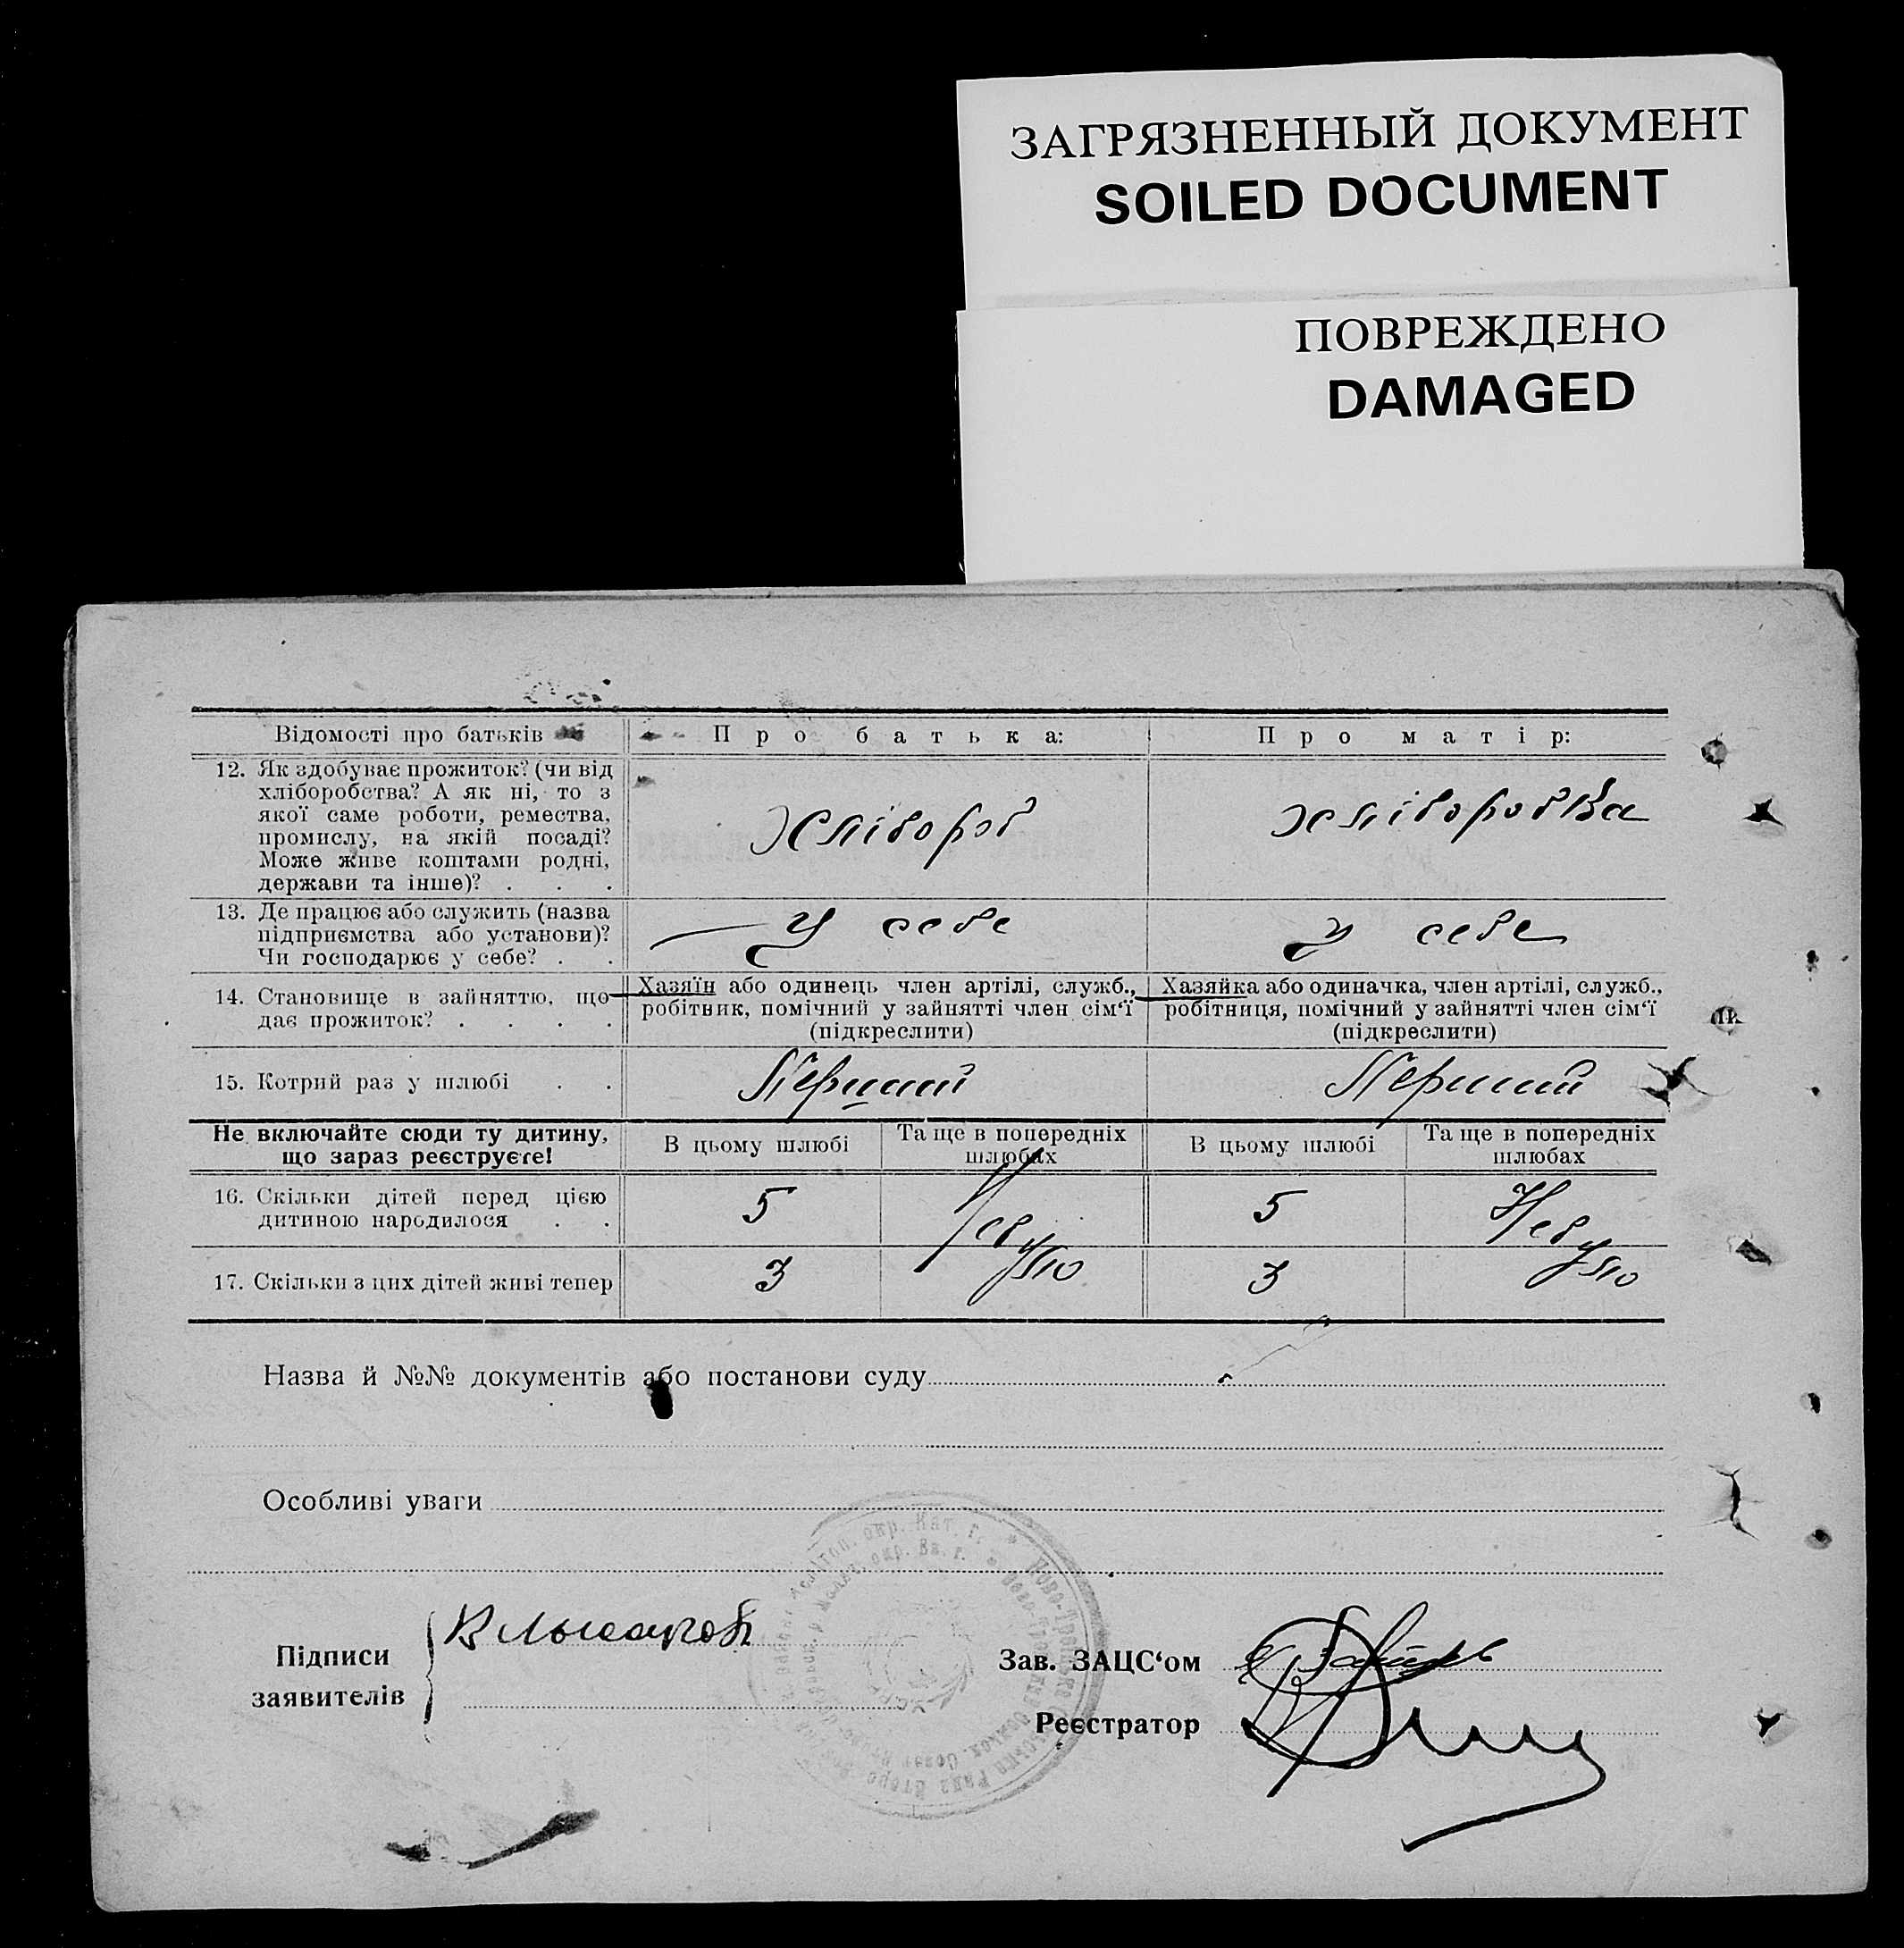 ЗАГРЯЗНЕННЫЙ ДОКУМЕНТ
SOILED DOCUMENT
ПОВРЕЖДЕНО
DAMAGED
Відомості про батьків
Про батька:
Про матір:
12. Як здобуває прожиток? (чи від
хліборобства? А як ні, то з
якої саме роботи, ремества,
промислу, на якій посаді?
Може живе коштами родні,
держави та інше)? . . .
Хлібороб
хліборобка
13. Де працює або служить (назва
підприємства або установи)?
Чи господарює у себе? . .
У себе
У себе
14. Становище в зайняттю, що
дає прожиток? . . . .
Хазяїн або одинець член артілі, служб.,
робітник, помічний у зайнятті член сім‘ї
(підкреслити)
Хазяйка або одиначка, член артілі, служб.,
робітниця, помічний у зайнятті член сім‘ї
(підкреслити)
15. Котрий раз у шлюбі . .
Перший
Перший
Не включайте сюди ту дитину,
що зараз реєструєте!
В цьому шлюбі
Та ще в попередніх
шлюбах
В цьому шлюбі
Та ще в попередніх
шлюбах
16. Скільки дітей перед цією
дитиною народилося . .
5
Не було
5
Не було
17. Скільки з цих дітей живі тепер
3
3
Назва й №№ документів або постанови суду
Особливі уваги
Підписи
заявителів
Зав. ЗАЦС‘ом
Реєстратор